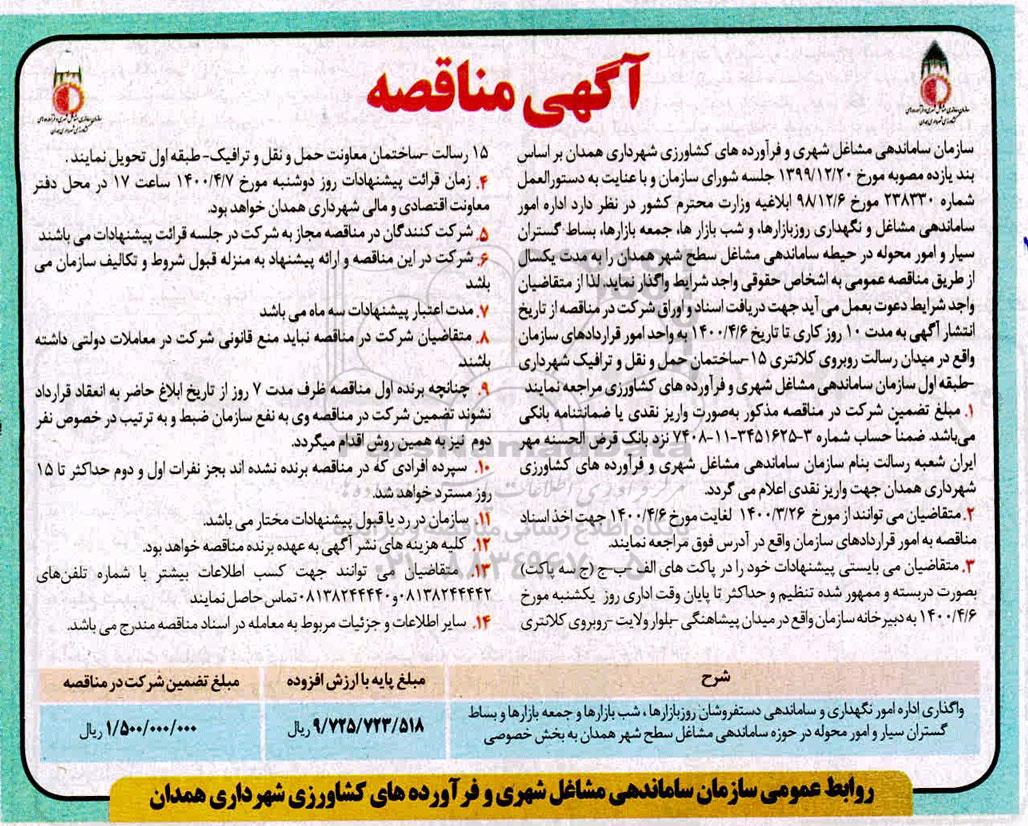 آگهی مناقصه
سازمان ساماندهی مشاغل شهری و فرآورده های کشاورزی شهرداری همدان بر اساس
بند یازده مصوبه مورخ ۱۳۹۹/۱۲/۲۰ جلسه شورای سازمان و با عنایت به دستورالعمل
شماره ۲۳۸۳۳۰ مورخ ۹۸/۱۲/۶ ابلاغیه وزارت محترم کشور در نظر دارد اداره امور
ساماندهی مشاغل و نگهداری روزبازارها، و شب بازار ها، جمعه بازارها، بساط گستران
سیار و امور محوله در حیطه ساماندهی مشاغل سطح شهر همدان را به مدت یکسال
از طریق مناقصه عمومی به اشخاص حقوقی واجد شرایط واگذار نماید. لذا از متقاضیان
واجد شرایط دعوت بعمل می آید جهت دریافت اسناد و اوراق شرکت در مناقصه از تاریخ
انتشار آگهی به مدت ۱۰ روز کاری تا تاریخ ۱۴۰۰/۴/۶ به واحد امور قراردادهای سازمان
واقع در میدان رسالت روبروی کلانتری ۱۵-ساختمان حمل و نقل و ترافیک شهرداری
-طبقه اول سازمان ساماندهی مشاغل شهری و فرآورده های کشاورزی مراجعه نمایند
۱. مبلغ تضمین شرکت در مناقصه مذکور به‌صورت واریز نقدی یا ضمانتنامه بانکی
می‌باشد. ضمناً حساب شماره ۳-۳۴۵۱۶۲۵-۱۱-۷۴۰۸ نزد بانک قرض الحسنه مهر
ایران شعبه رسالت بنام سازمان ساماندهی مشاغل شهری و فرآورده های کشاورزی
شهرداری همدان جهت واریز نقدی اعلام می گردد.
۲. متقاضیان می توانند از مورخ ۱۴۰۰/۳/۲۶ لغایت مورخ ۱۴۰۰/۴/۶ جهت اخذ اسناد
مناقصه به امور قراردادهای سازمان واقع در آدرس فوق مراجعه نمایند.
۳. متقاضیان می بایستی پیشنهادات خود را در پاکت های الف-ب-ج (ج سه پاکت)
بصورت دربسته و ممهور شده تنظیم و حداکثر تا پایان وقت اداری روز یکشنبه مورخ
۱۴۰۰/۴/۶ به دبیرخانه سازمان واقع در میدان پیشاهنگی -بلوار ولایت -روبروی کلانتری
۱۵ رسالت -ساختمان معاونت حمل و نقل و ترافیک- طبقه اول تحویل نمایند.
۴. زمان قرائت پیشنهادات روز دوشنبه مورخ ۱۴۰۰/۴/۷ ساعت ۱۷ در محل دفتر
معاونت اقتصادی و مالی شهرداری همدان خواهد بود.
۵. شرکت کنندگان در مناقصه مجاز به شرکت در جلسه قرائت پیشنهادات می باشند
۶. شرکت در این مناقصه و ارائه پیشنهاد به منزله قبول شروط و تکالیف سازمان می
باشد
۷. مدت اعتبار پیشنهادات سه ماه می باشد
۸. متقاضیان شرکت در مناقصه نباید منع قانونی شرکت در معاملات دولتی داشته
باشند
۹. چنانچه برنده اول مناقصه ظرف مدت ۷ روز از تاریخ ابلاغ حاضر به انعقاد قرارداد
نشوند تضمین شرکت در مناقصه وی به نفع سازمان ضبط و به ترتیب در خصوص نفر
دوم نیز به همین روش اقدام میگردد.
۱۰. سپرده افرادی که در مناقصه برنده نشده اند بجز نفرات اول و دوم حداکثر تا ۱۵
روز مسترد خواهد شد.
۱۱. سازمان در رد یا قبول پیشنهادات مختار می باشد.
۱۲. کلیه هزینه های نشر آگهی به عهده برنده مناقصه خواهد بود.
۱۳. متقاضیان می توانند جهت کسب اطلاعات بیشتر با شماره تلفن‌های
۰۸۱۳۸۲۴۴۴۴۲ و ۰۸۱۳۸۲۴۴۴۴۰ تماس حاصل نمایند
۱۴. سایر اطلاعات و جزئیات مربوط به معامله در اسناد مناقصه مندرج می باشد.
شرح مبلغ پایه با ارزش افزوده مبلغ تضمین شرکت در مناقصه
واگذاری اداره امور نگهداری و ساماندهی دستفروشان روزبازارها ، شب بازارها و جمعه بازارها و بساط
گستران سیار و امور محوله در حوزه ساماندهی مشاغل سطح شهر همدان به بخش خصوصی
۹/۷۲۵/۷۲۳/۵۱۸ ریال ۱/۵۰۰/۰۰۰/۰۰۰ ریال
روابط عمومی سازمان ساماندهی مشاغل شهری و فرآورده های کشاورزی شهرداری همدان
ParsNamadData